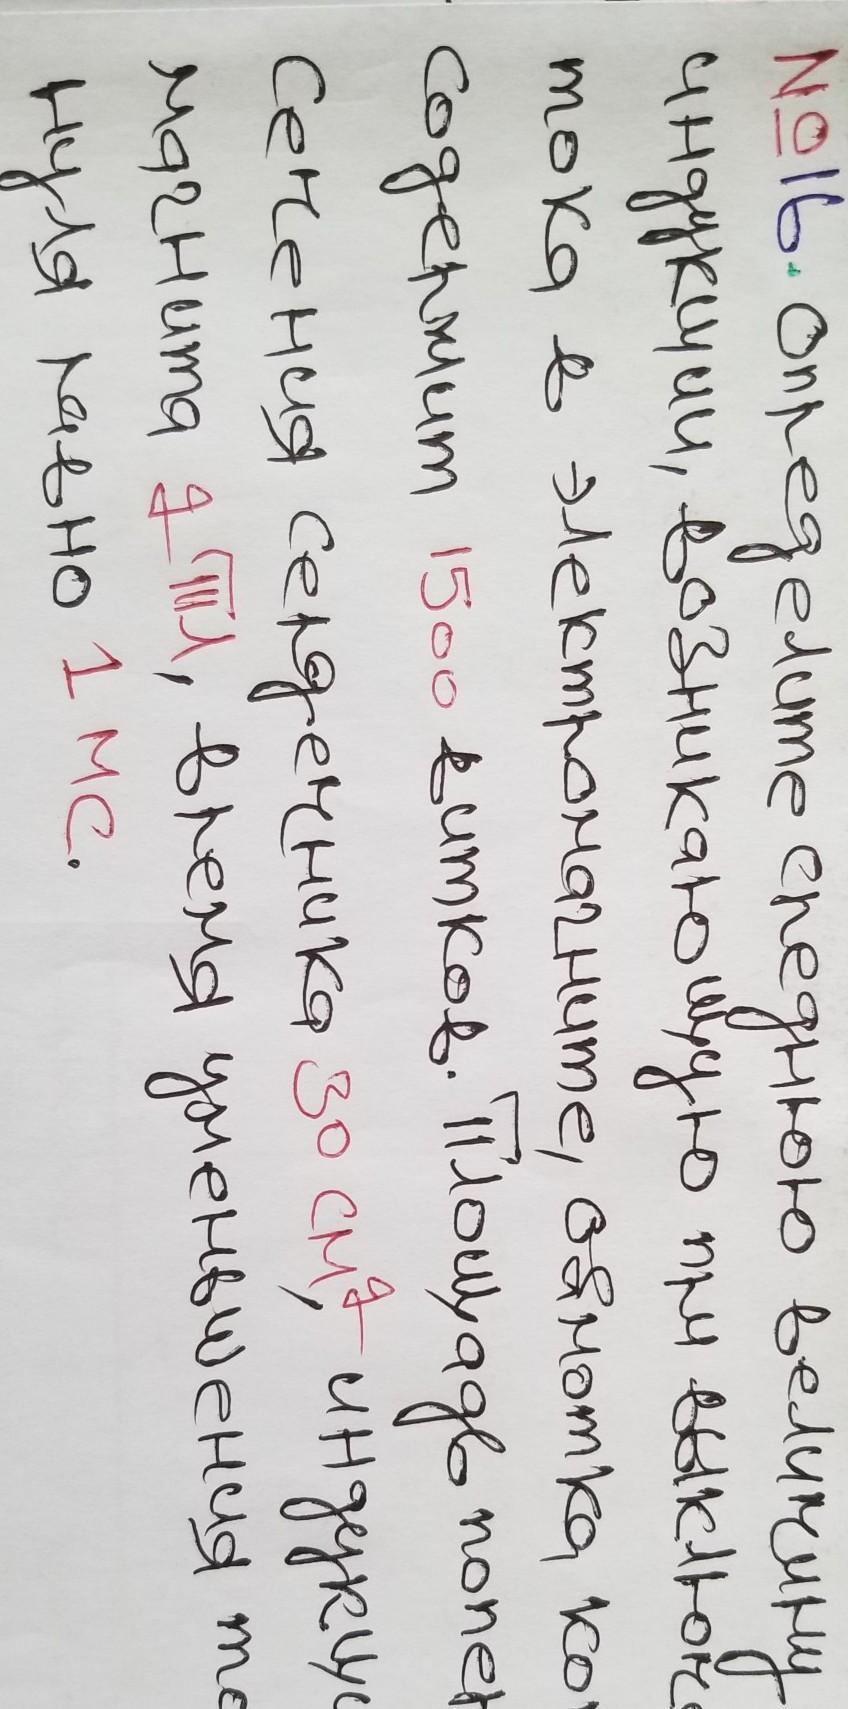 №16. Определите среднюю величину
индукции, возникающую при выключ
тока в электромагните, обмотка ко
содержит 1500 витков. Площадь попер
сечения сердечника 30 см², индукц
магнита 2 Тл, время уменьшения то
нуля равно 1 мс.